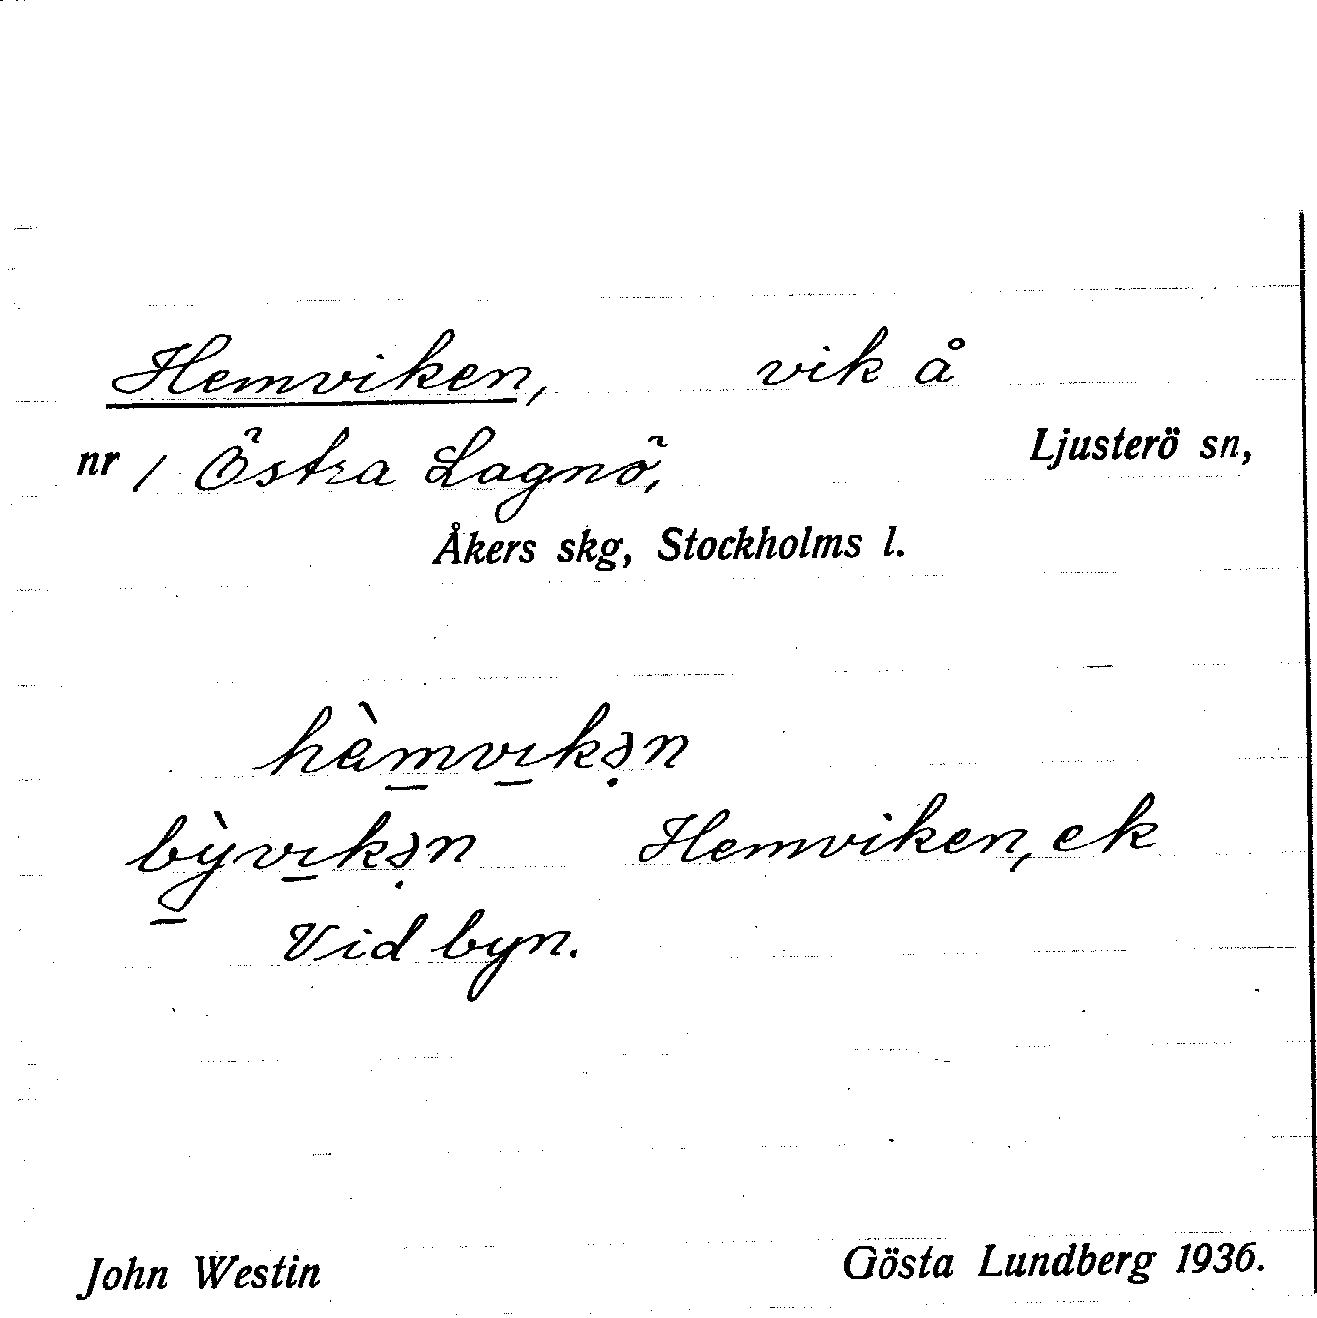 Hemviken, vik å
nr 1 Östra Lagnö, Ljusterö sn,
Åkers skg, Stockholms l.
hàm̲vı̲kə̣n
bỳ̲vı̲kə̣n Hemviken, ek
Vid byn.
John Westin Gösta Lundberg 1936.